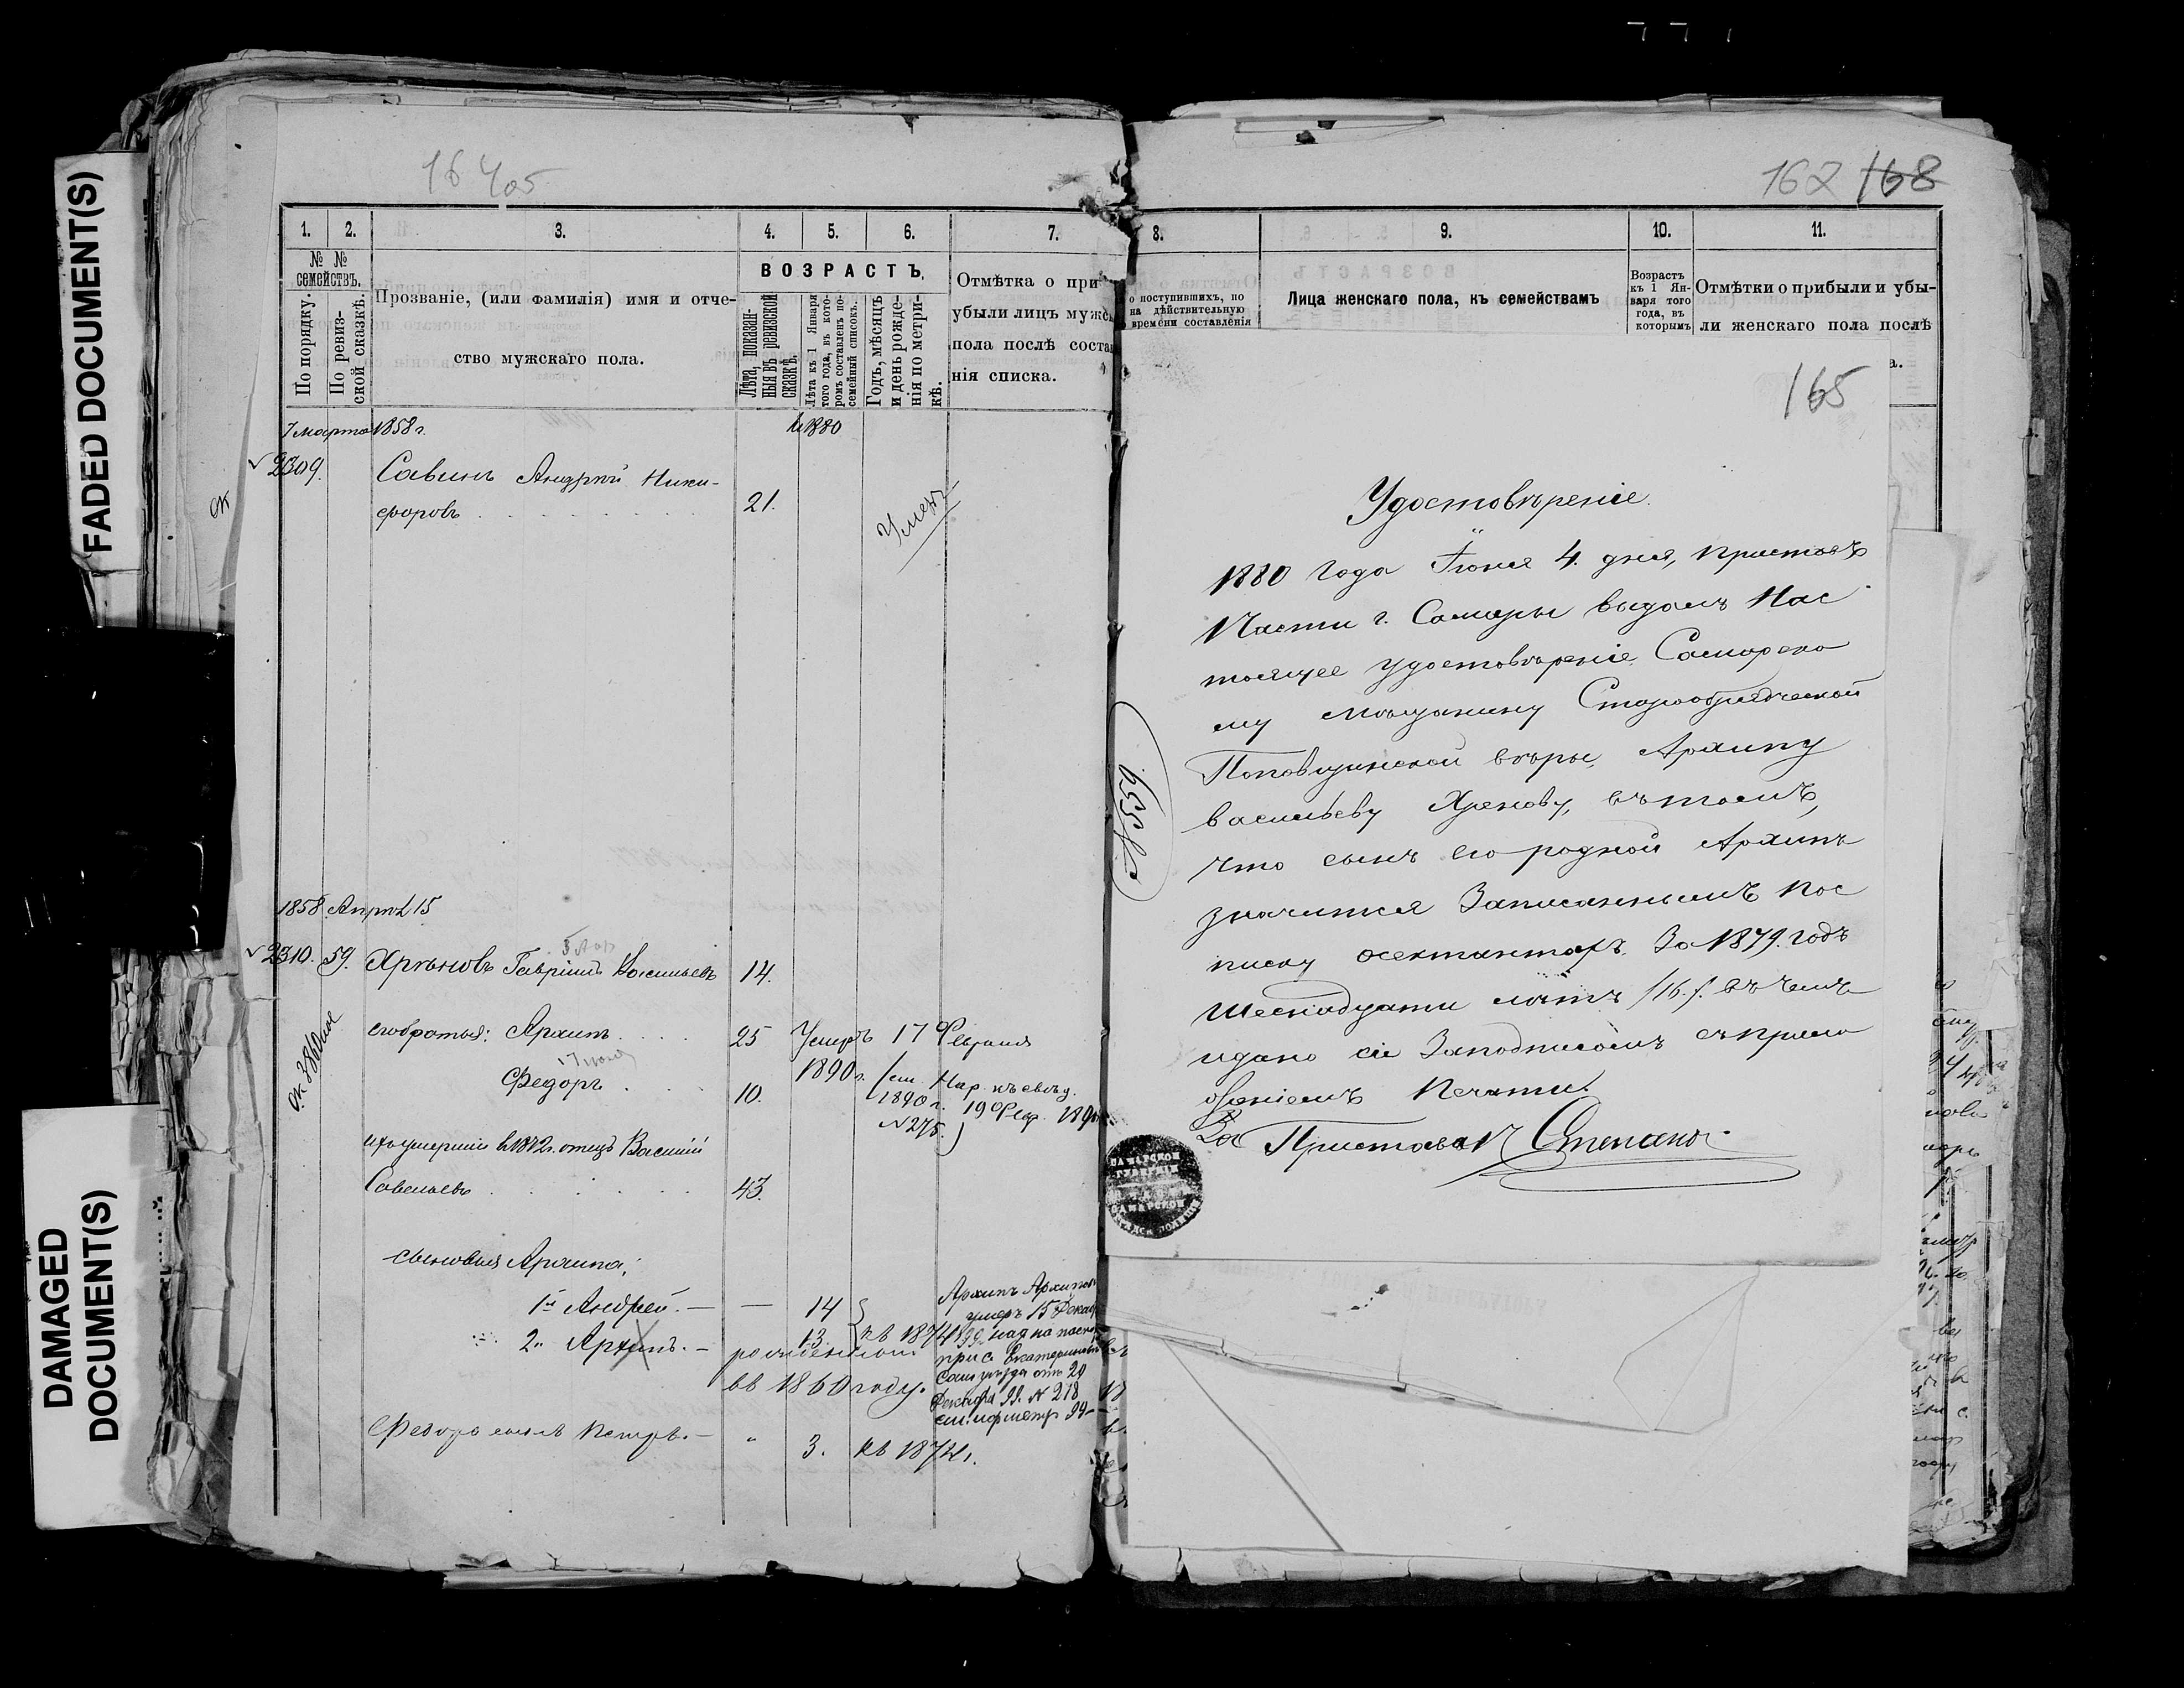 FADED DOCUMENT(S)
DAMAGED
DOCUMENT(S)
16 405
1.
2.
3.
4.
5.
6.
7.
№ №
семействъ.
По порядку.
По ревиз-
ской сказкѣ.
Прозваніе, (или фамилія) имя и отче-
ство мужскаго пола.
ВОЗРАСТЪ.
Лѣта, показан-
ныя въ ревизской
сказкѣ.
Лѣта къ 1 Января
того года, въ кото-
ромъ составленъ по-
семейный списокъ.
Годъ, мѣсяцъ
и день рожде-
нія по метри-
кѣ.
Отмѣтка о при
убыли лицъ мужс
пола послѣ соста
нія списка.
7 марта 1858 г.
1880
2309.
Савинъ Андрей Ники-
форовъ
21.
Умеръ
1858 Апрѣл 15
2310. 59. Хрѣновъ Гавріилъ Васильевъ 14.
его братья: Архипъ 25 Умеръ 17 Февраля
1890 г.
Федоръ 10.
1890 г. 19 Фев.
№ 275.
ихъ умершій в 1872 г. отецъ Василій
Савельевъ 43.
сыновья Архипа:
1й Андрей. — — 14
2й Архипъ. — 13. къ 1874
рожденный
въ 1860 году.
Архипъ Архипов
умеръ 15 Декаб
при с. Екатериновк
Сам уѣзда отъ 29
Декабря 99. № 218
Федора сынъ Петръ. — " 3. къ 1874 г.
162 168
8.
9.
10.
11.
о поступившихъ, по
на дѣйствительную
времени составленія
Лица женскаго пола, къ семействамъ
Возрастъ
къ 1 Ян-
варя того
года, въ
которымъ
Отмѣтки о прибыли и убы-
ли женскаго пола послѣ
а.
165
Удостовѣреніе.
1880 года Іюня 4. дня, Приставъ
1 Части г. Самары выдалъ Нас
тоящее удостовѣреніе Самарско
му мѣщанину Старообрядческой
Поповщинской вѣры, Архипу
Васильеву Хренову, въ томъ,
что сынъ его родной Архипъ
значится Записаннымъ пос
писку о сектантахъ За 1879. годъ
Шеснадцати лѣтъ /16./. въ чемъ
и дано сіе За подписомъ съ прило
женіемъ Печати.
За Пристава Степанов